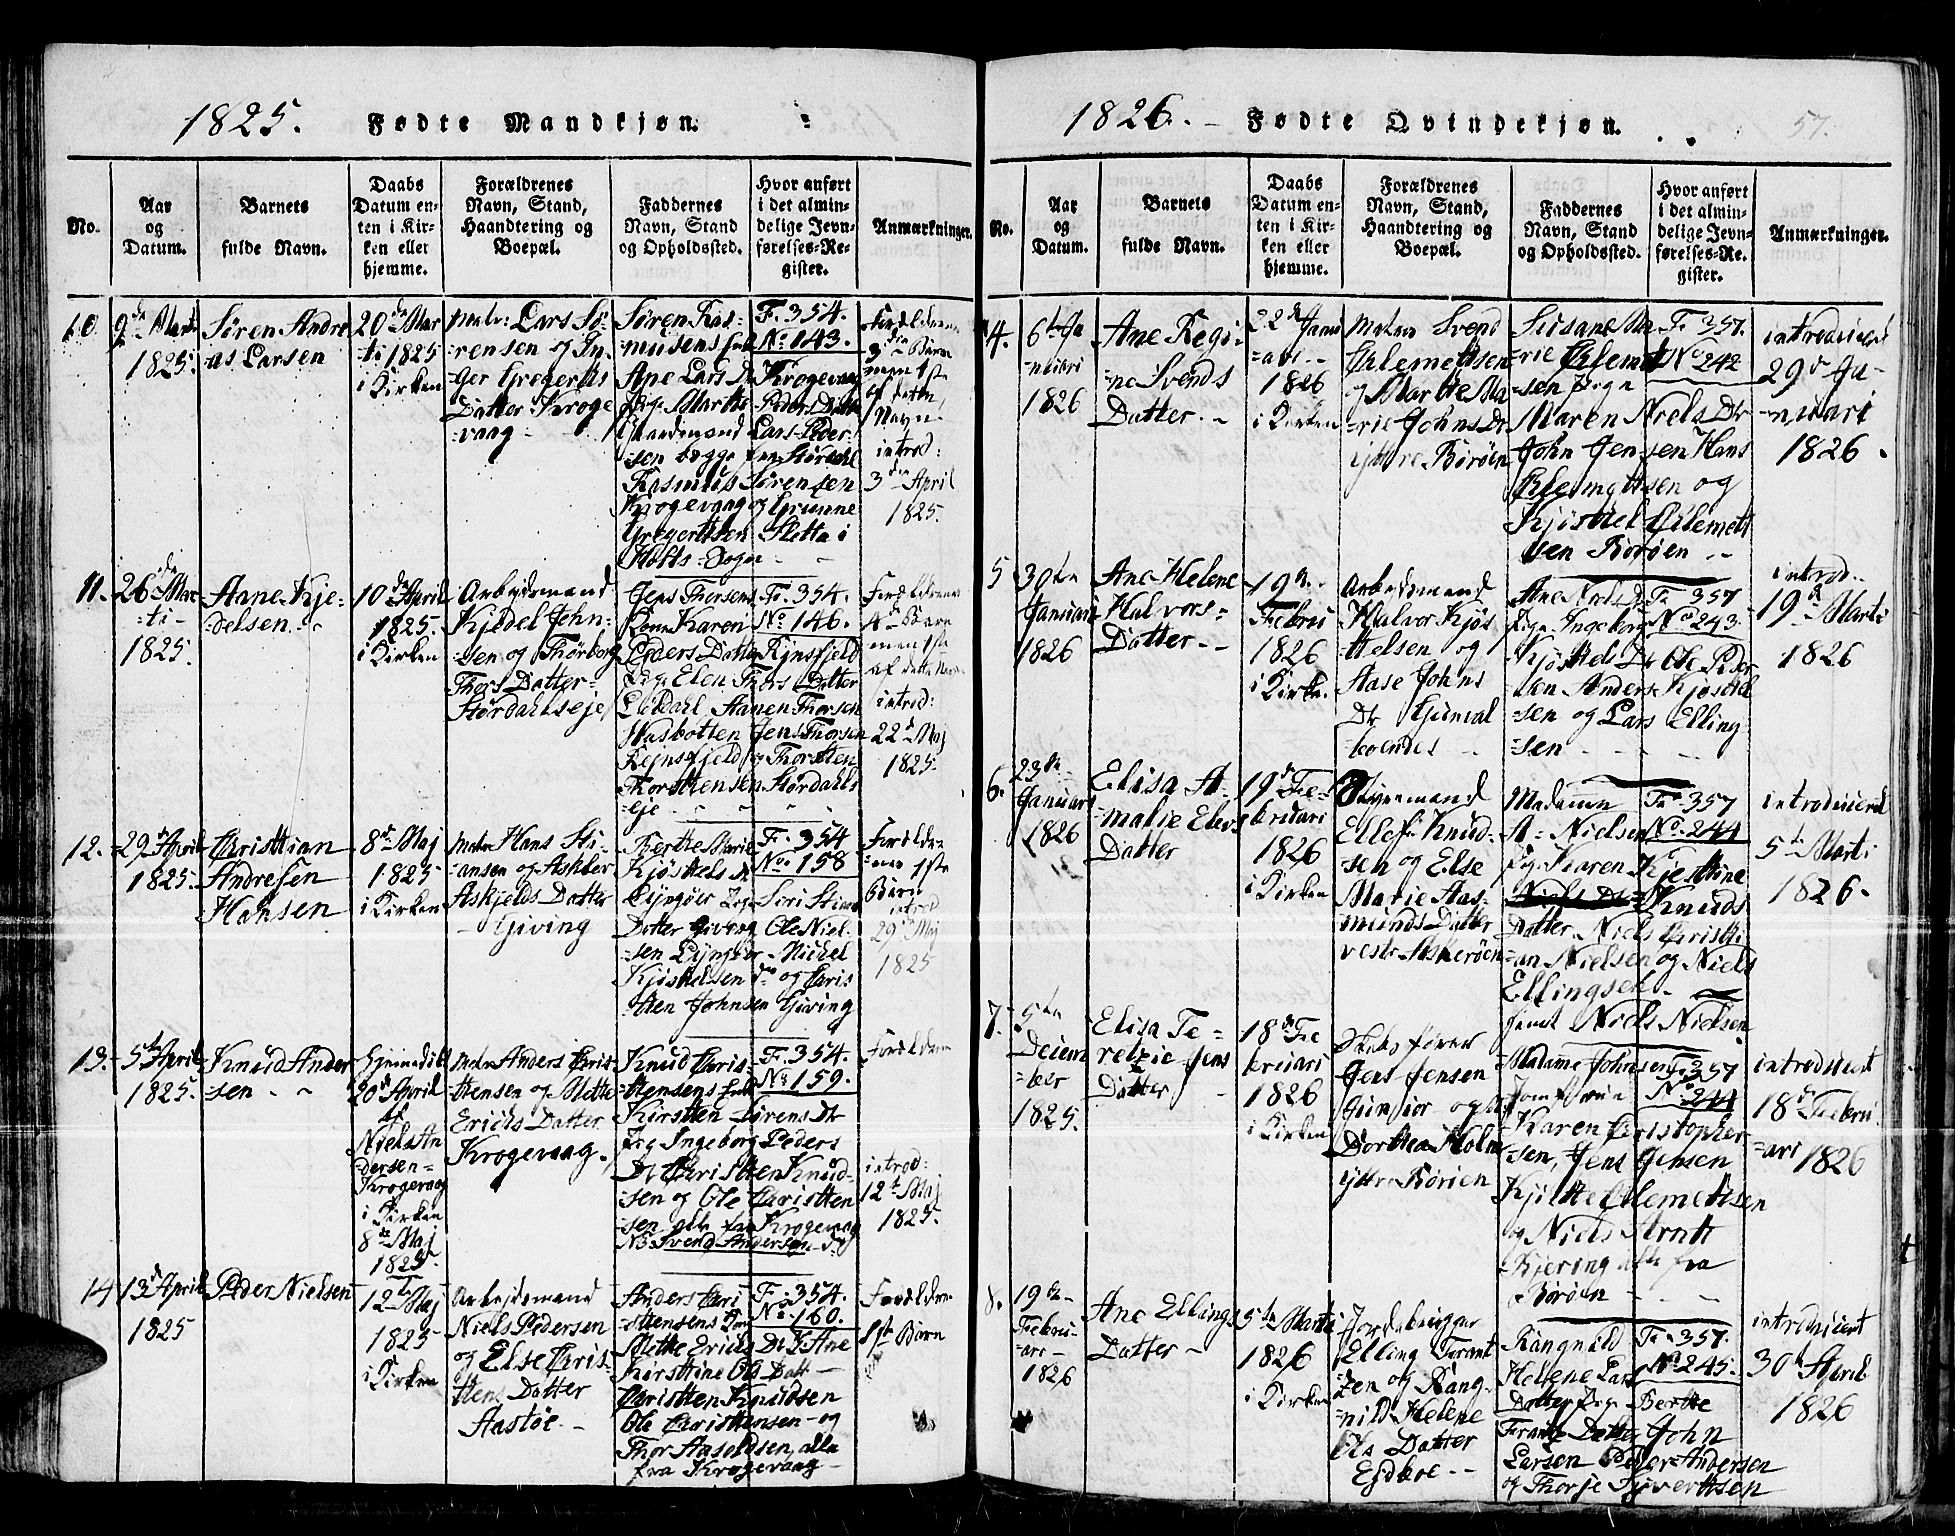 1825. Fødte Mandkjøn.
No.
Aar
og
Datum.
Barnets
fulde Navn.
Daabs
Datum en-
ten i Kir-
ken eller
hjemme.
Forældrenes
Navn, Stand,
Haandtering og
Boepæl.
Faddernes
Navn, Stand
og Opholdssted.
Hvor anført
i det almin-
delige Jevn-
førelses-Re-
gister.
Anmærkninger.
10.
9de Marti
1825.
Søren Andre
as Larsen
20de Mar
ti 1825
i Kirken
Matr: Lars Sø-
rensen og In-
ger Gregerts
Datter Kroge
vaag
Søren Ras-
musens
Ane Lars D.
Marthe Peders Datter
Gaardmand Lars Peder-
sen begge fra Størdahl
Rasmus Sørensen
Krogevaag og Gunne
Gregertsen Sletta i
Holts Sogn
F. 354.
No 143.
Krogevaag
Forældrene
3die Barn
men 1ste
af dette
Navn
introd:
3die April
1825.
11.
26de Mar
ti
1825.
Aane Kje-
delsen.
10de April
1825.
i Kirken
Arbejdsmand
Kjedel John-
sen og Thorborg
Thors Datter
Størdahlseje
Jens Thorsens
Kone Karen
Peders Datter Rejnsfjeld
Pige Elen Thors Datter
Lødahl Aanen Thorsen
Nasbotten Jens Thorsen
Rejnsfjeld og Thorsten
Thorsttensen Størdahls
eje
F. 354.
No 146.
Forældrenes
4de Barn
men 1ste
af dette Navn
introd:
22de Maj
1825.
12.
29de April
1825.
Christtian
Andresen
Hansen
8de Maj
1825
i Kirken
Matr Hans Sti-
ansen og Asklev
Askjelds Datter
Giving
Berthe Marie
Kjøsttels Dr
Lyngøer Pige Siri Stians
Datter Giving Ole Niel-
sen Lyngøer Michel
Kjøsttelsen do og Chris
tten Johnsen Giving
F. 354
No 158
Forældre
nes 1ste
Barn
introd
29de Maj
1825
13.
5te April
1825.
Knud Ander
sen
Hjemmedøbt
20de April
af
Niels An
dersen
Krogevaag
i Kirken
8de Maj
1825.
Matr Anders Chris
ttensen og Mette
Erichs Datter
Krogevaag.
Knud Chris-
ttensens
Kirstten Sørens Dr
Pig Ingeborg Peders
Dr Christten Knud-
sen og Ole Christten
sen alle fra Krogevaag
NB Svend Andersen do
F. 354.
No 159.
Forældrene
introd:
12te Maj
1825.
14
13de April
1825
Peder Nielsen
12te Maj
1825
i Kirken
Arbejdsmand
Niels Pedersen
og Else Chris-
ttens Datter
Aastøe
Anders Chri
sttensens Kone
Mette Erichs Dr P. Ane
Kirsttine Ols Datt
Christten Knudsen
Ole Christtensen og
Thor Aasoldsen, alle
fra Krogevaag
F. 354.
No. 160.
Forældrene
1ste Barn
1826. Fødte Qvindekjøn.
57.
No.
Aar
og
Datum.
Barnets
fulde Navn.
Daabs
Datum en-
ten i Kir-
ken eller
hjemme.
Forældrenes
Navn, Stand,
Haandtering og
Boepæl.
Faddernes
Navn, Stand
og Opholdssted.
Hvor anført
i det almin-
delige Jevn-
førelses-Re-
gister.
Anmærkninger.
4.
6te Ja
nuari
1826
Ane Regi-
ne Svends
Datter
22de Janu
ari
1826
i Kirken
Matros Svend
Clemettsen
og Marthe Ma
rie Johns Dr
ijttre Borøen
Susane Ma
rie Clemett
sen Pige
Maren Niels Dtr
John Jensen Hans
Clemettsen og
Kjøsttel Clemett
sen Borøen
Fo 357.
No 242
introduceret
29de Ja-
nuari
1826.
5
30te
Januari
1826
Ane Helene
Halvors-
Datter
19de
Febru
1826
i Kirken
Arbejdsmand
Halvor Kjøs
ttelsen og
Aase Johns
Dtr
Ane Niels Dr
Pige Ingeborg
Kjøsttels Dr Ole Peder
sen Anders Kjøsttel
sen og Lars Elling
sen
Fo 357
No 243.
introd.
19de Marti
1826
6.
23de
Januari
1826
Elisa A-
malie Elefs
Datter
19de Fe-
bruari
1826
i Kirken
Ellef Knud-
sen og Else
Marie Aas-
munds Datter
vestr Askerøen
Madamm
A. Nielsen
Pig. Karen Kjesttine
Knuds
Datter Niels Christti
an Nielsen og Niels
Ellingsen
Niels Nielsen
Fo 357
No 244
introduceret
5te Marti
1826.
7.
5te
Decem
ber
1825.
Elisa Te-
retzie Jens
Datter
18de Fe
bruari
1826
i Kirken
Skibsfører
Jens Jensen
Junior og
Dorthea Holm
ijttre Borøen
Madame Johnsen
Jomfruen
Karen Christopher
sen, Jens Jensen
Kjøltte Clemettsen
og Niels Arntt
Kjering alle fra
Borøen
Fo 357
No 244
introduceret
18de Febru
ari 1826
8.
19de
Febru-
ari
1826
Ane Ellings
Datter
5te Marti
1826
i Kirken
Jordebruger
Elling Frant
zen og Rang-
nild Helene
Ols Datter
Eydboe
Rangnild
Helene Lars
Datter Pige Berthe
Frantz Datter John
Larsen Peder Andersen
og Thorje Syverttsen
Fo 357.
No 245.
introduceret
30te April
1826